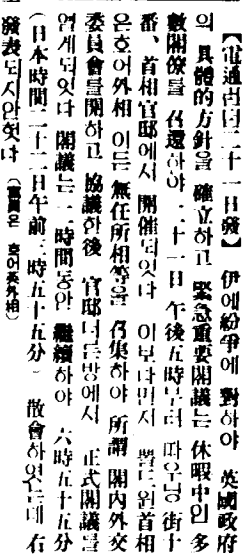 【電通론던二十一日發】 伊에紛爭에 對하야 英國政府
의 具體的方針을 確立하고 緊急重要閣議는 休暇中인 多
數閣僚를 召還하야 二十一日 午後五時부터 따우닝街十
番、首相官邸에서 開催되엿다 이보다먼저 뽈드윈首相
은호어外相 이든 無任所相等을 召集하야 所謂 閣內外交
委員會를開하고 協議한後 官邸너른방에서 正式閣議를
열게되엿다 閣議는 二時間동안 繼續하야 六時五十五分
(日本時間二十二日午前二時五十五分) 散會하엿는데 右
發表되지안엇다 (寫眞은 호어英外相)